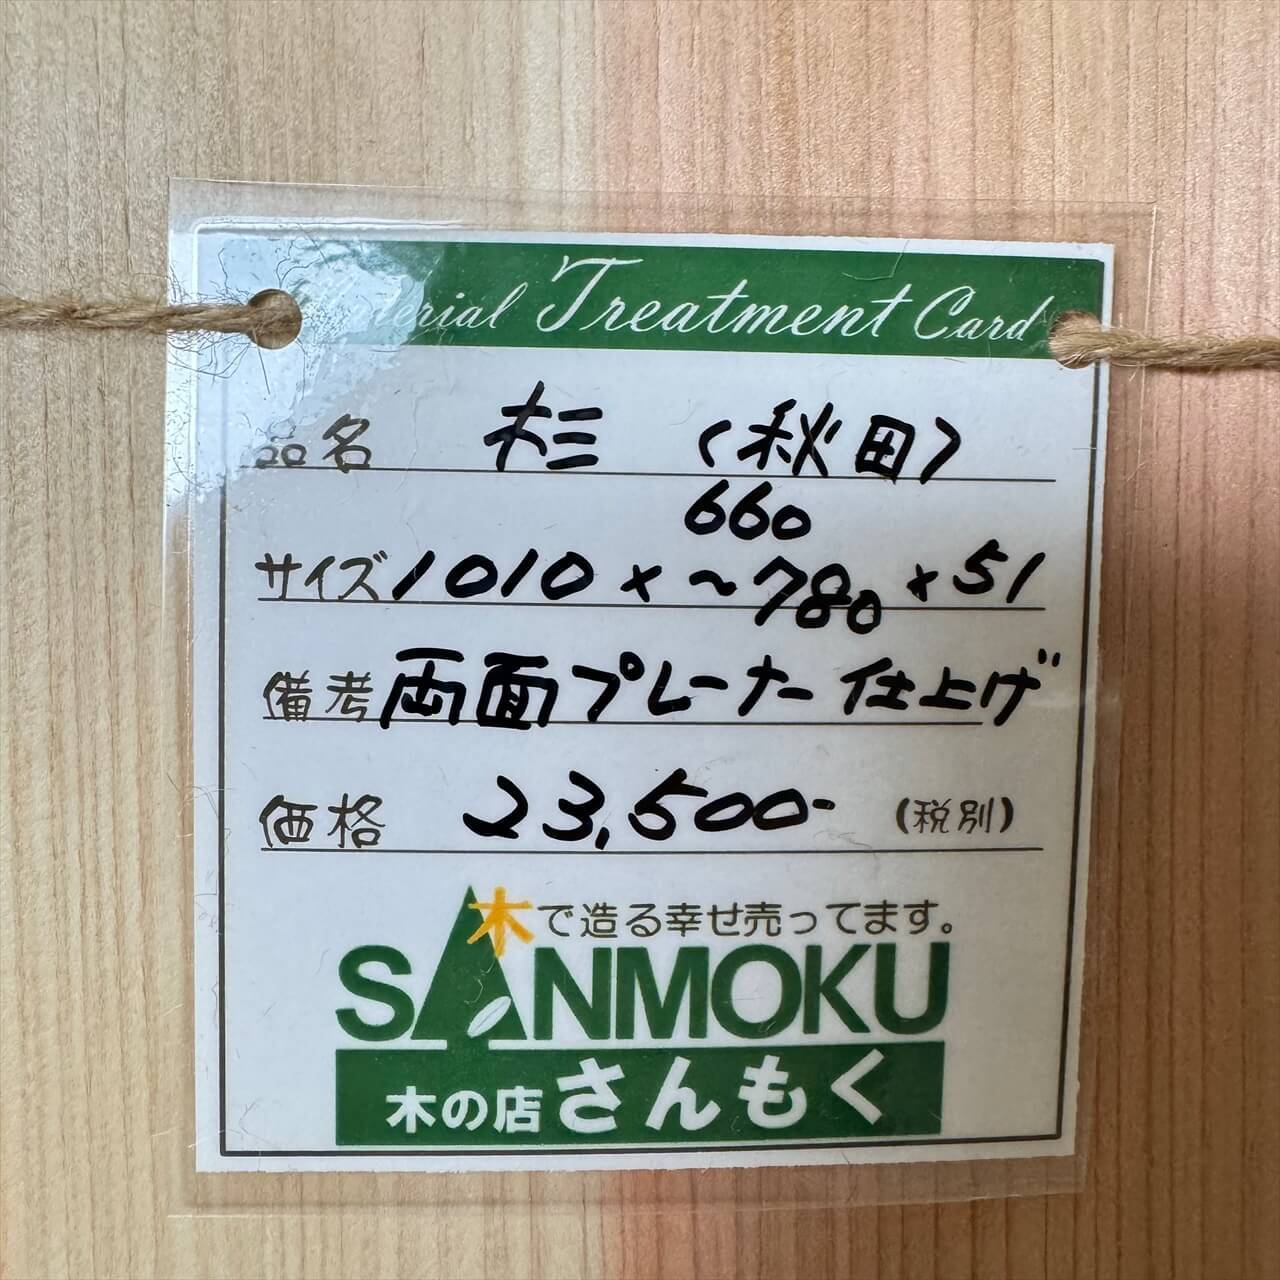 Material Treatment Card
品名 杉 (秋田)
660
サイズ 1010×~780×51
備考 両面プレーナー仕上げ
価格 23,500- (税別)
木で造る幸せ売ってます。
SANMOKU
木の店 さんもく